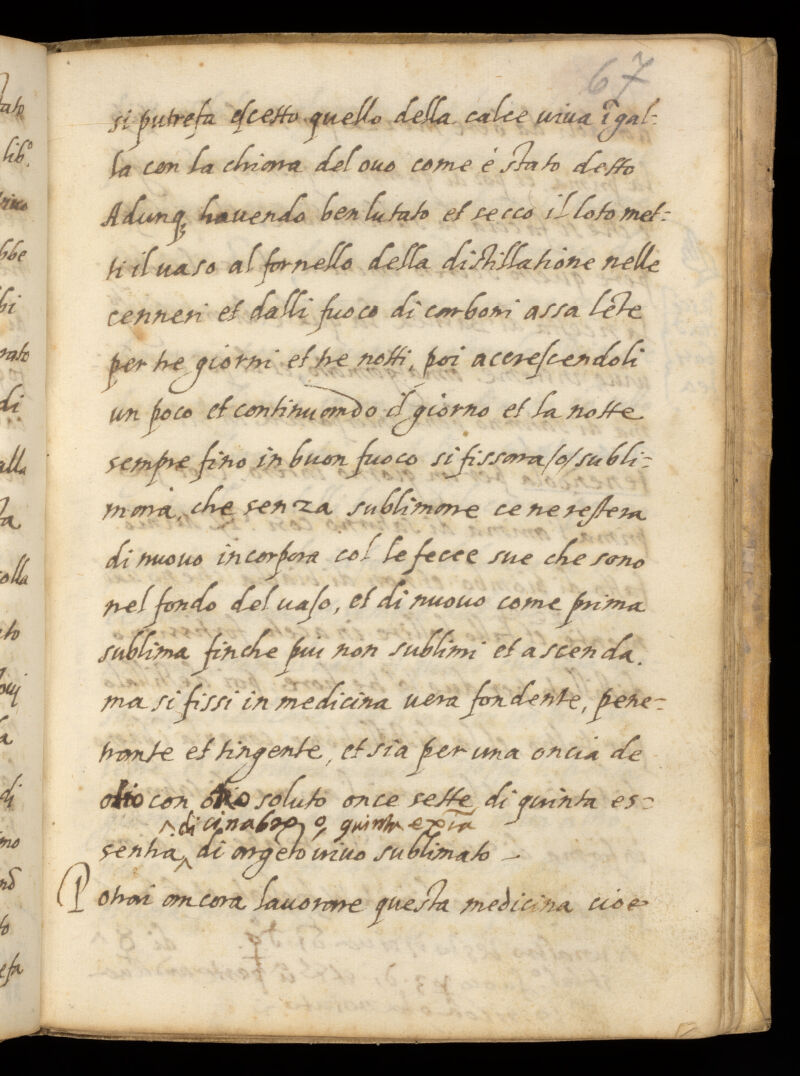 67
si putrefa escetto quello della calce uiua ĩgal-
la con la chiara del ouo come é stato detto
Adunq, hauendo ben lutato et secco il loto met-
ti il uaso al fornello della distillatione nelle
cenneri et dalli fuoco di carboni assa lẽte
per tre giorni et tre notti, poi accrescendoli
un poco et continuando il giorno et la notte
sempre fino in buon fuoco si fissara /o/ subli-
mará, che senza sublimare ce ne restera
di nuouo incorpora col le fecce sue che sono
nel fondo del uaso, et di nuouo come prima
sublima finche piu non sublimi et ascenda.
ma si fissi in medicina uera fondente, pene-
trante et tingente, et sia per una oncia de
olio con olio soluto once sette di quinta es-
^ di cinabro, o quinta exĩa
sentia ^ di argẽto uiuo sublimato -
Potrai ancora lauorare questa medicina cioe